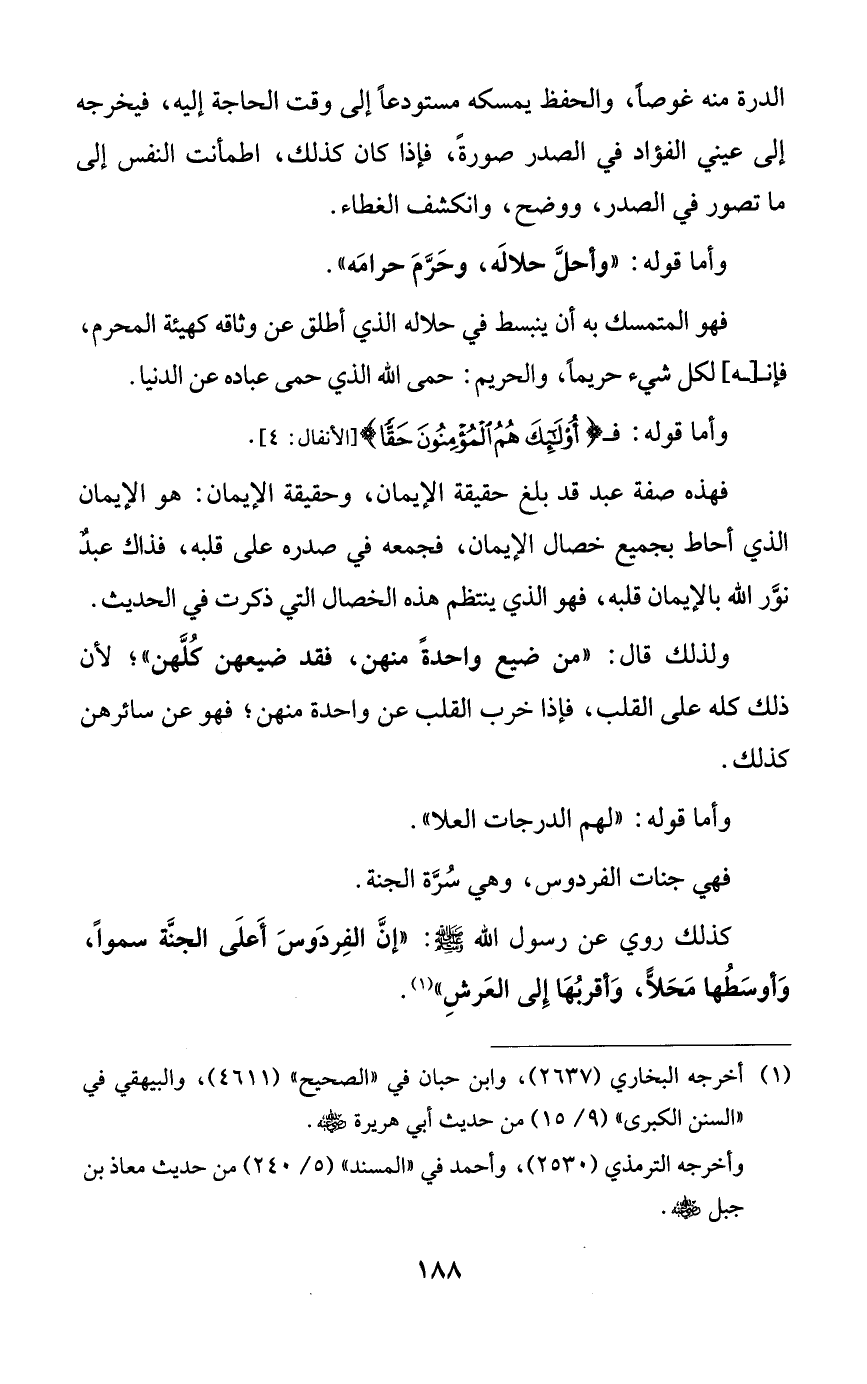 الدرة منه غوصاً، والحفظ يمسكه مستودعاً إلى وقت الحاجة إليه، فيخرجه
إلى عيني الفؤاد في الصدر صورةً، فإذا كان كذلك، اطمأنت النفس إلى
ما تصور في الصدر، ووضح، وانكشف الغطاء.
وأما قوله: «وأحلَّ حلالَه، وحَرَّمَ حرامَه».
فهو المتمسك به أن ينبسط في حلاله الذي أطلق عن وثاقه كهيئة المحرم،
فإنـ[ـه] لكل شيء حريماً، والحريم: حمى الله الذي حمى عباده عن الدنيا.
وأما قوله: فـ﴿أُوْلَٰٓئِكَ هُمُ ٱلْمُؤْمِنُونَ حَقًّا﴾[الأنفال: ٤].
فهذه صفة عبد قد بلغ حقيقة الإيمان، وحقيقة الإيمان: هو الإيمان
الذي أحاط بجميع خصال الإيمان، فجمعه في صدره على قلبه، فذاك عبدٌ
نوَّر الله بالإيمان قلبه، فهو الذي ينتظم هذه الخصال التي ذكرت في الحديث.
ولذلك قال: «من ضيع واحدةً منهن، فقد ضيعهن كُلَّهن»؛ لأن
ذلك كله على القلب، فإذا خرب القلب عن واحدة منهن؛ فهو عن سائرهن
كذلك.
وأما قوله: «لهم الدرجات العلا».
فهي جنات الفردوس، وهي سُرَّة الجنة.
كذلك روي عن رسول الله ﷺ: «إنَّ الفِردَوسَ أَعلَى الجنَّة سمواً،
وَأوسَطُها مَحَلاًّ، وَأقربُهَا إلى العَرشِ»(١).
(١) أخرجه البخاري (٢٦٣٧)، وابن حبان في «الصحيح» (٤٦١١)، والبيهقي في
«السنن الكبرى» (٩/ ١٥) من حديث أبي هريرة رضي الله عنه.
وأخرجه الترمذي (٢٥٣٠)، وأحمد في «المسند» (٥/ ٢٤٠) من حديث معاذ بن
جبل رضي الله عنه.
١٨٨